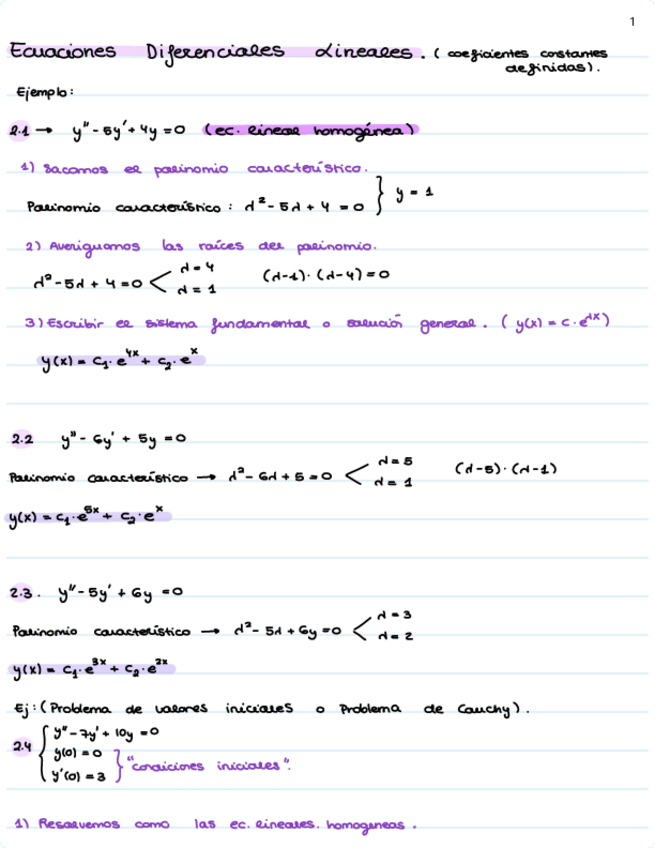 1
Ecuaciones Diferenciales Lineales. (coeficientes constantes
definidas).
Ejemplo:
2.1 → y'' - 5y' + 4y = 0 (ec. lineal homogénea)
1) Sacamos el polinomio característico.
Polinomio característico : λ² - 5λ + 4 = 0 } y = 1
2) Averiguamos las raíces del polinomio.
λ² - 5λ + 4 = 0 < λ = 4 λ = 1 (λ-1)·(λ-4) = 0
3) Escribir el sistema fundamental o solución general. ( y(x) = c·e^λx )
y(x) = c₁·e^4x + c₂·e^x
2.2 y'' - 6y' + 5y = 0
Polinomio característico → λ² - 6λ + 5 = 0 < λ = 5 λ = 1 (λ-5)·(λ-1)
y(x) = c₁·e^5x + c₂·e^x
2.3. y'' - 5y' + 6y = 0
Polinomio característico → λ² - 5λ + 6y = 0 < λ = 3 λ = 2
y(x) = c₁·e^3x + c₂·e^2x
Ej: (Problema de valores iniciales o Problema de Cauchy).
2.4 { y'' - 7y' + 10y = 0
y(0) = 0
y'(0) = 3 } "condiciones iniciales".
1) Resolvemos como las ec. lineales. homogeneas.